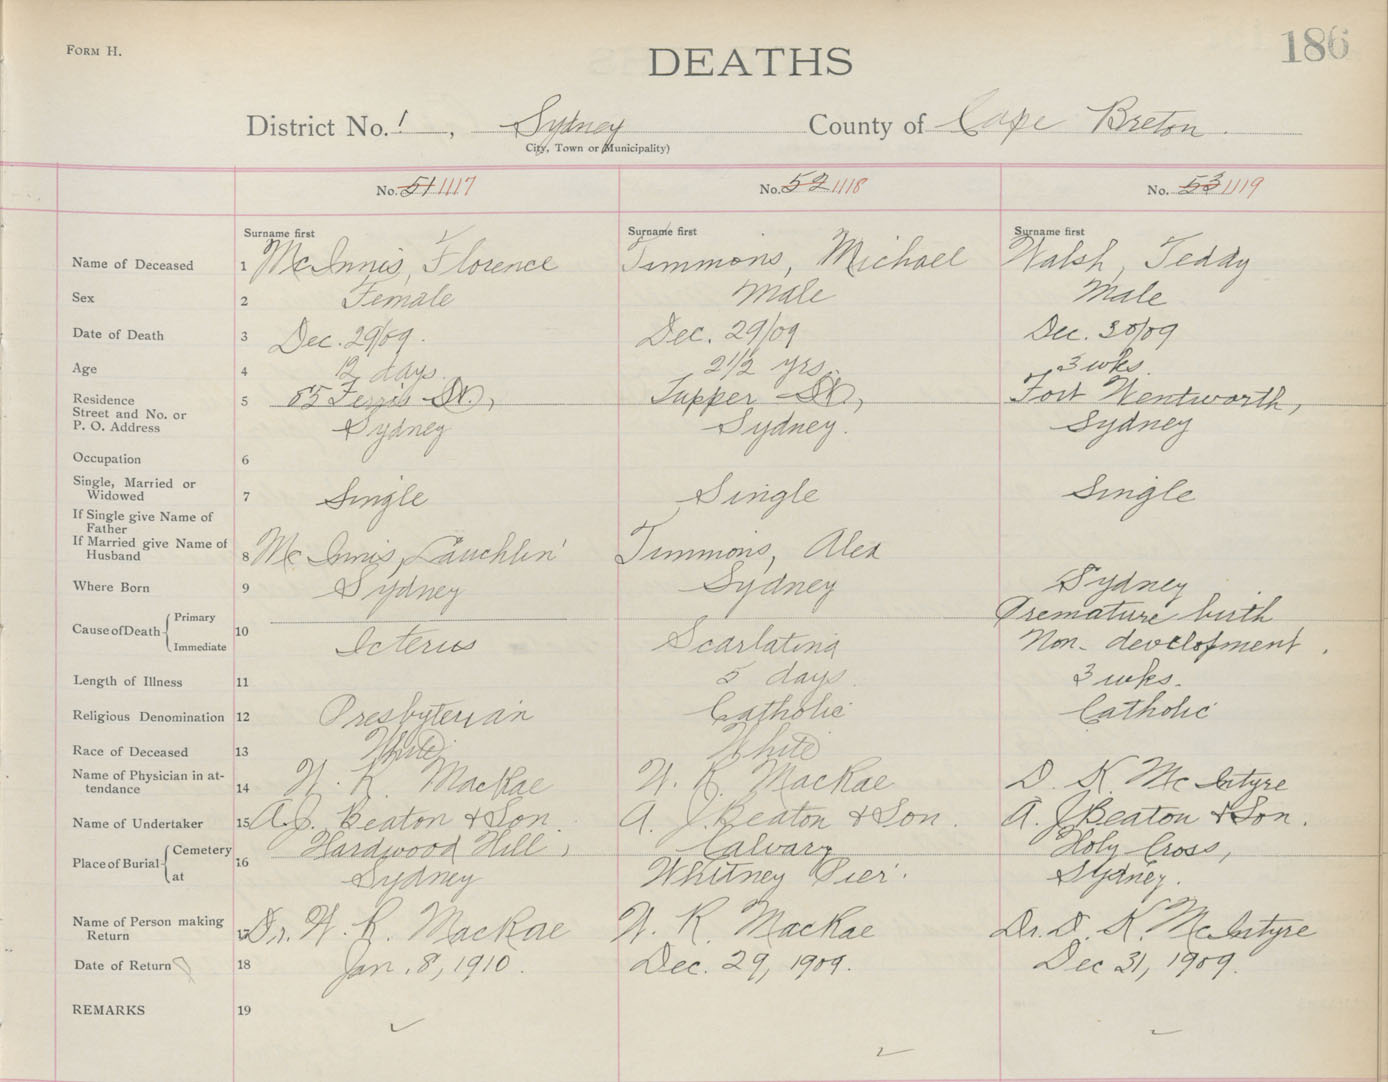 FORM H.
186
DEATHS
District No. 1, Sydney County of Cape Breton.
City, Town or Municipality)
No. 51 1117 No. 52 1118 No. 53 1119
Surname first Surname first Surname first
Name of Deceased 1 McInnis, Florence Timmons, Michael Walsh, Teddy
Sex 2 Female Male Male
Date of Death 3 Dec. 29/09. Dec. 29/09 Dec. 30/09
Age 4 12 days. 2 1/2 yrs. 3 wks.
Residence 5 85 Ferris St., Tupper St., Fort Wentworth,
Street and No. or
P. O. Address Sydney Sydney. Sydney
Occupation 6
Single, Married or
Widowed 7 Single Single Single
If Single give Name of
Father
If Married give Name of
Husband 8 McInnis, Lauchlin Timmons, Alex
Where Born 9 Sydney Sydney Sydney
Cause of Death Primary 10 Premature birth
Immediate Icterus Scarlatina Non-development.
Length of Illness 11 5 days. 3 wks.
Religious Denomination 12 Presbyterian Catholic Catholic
Race of Deceased 13 White White
Name of Physician in at-
tendance 14 W. R. MacRae W. R. MacRae D. K. McIntyre
Name of Undertaker 15 A. J. Beaton & Son. A. J. Beaton & Son. A. J. Beaton & Son.
Place of Burial Cemetery 16 Hardwood Hill, Calvary Holy Cross,
at Sydney Whitney Pier. Sydney.
Name of Person making
Return 17 Dr. W. R. MacRae W. R. MacRae Dr. D. K. McIntyre
Date of Return 18 Jan. 8, 1910. Dec. 29, 1909. Dec 31, 1909.
REMARKS 19